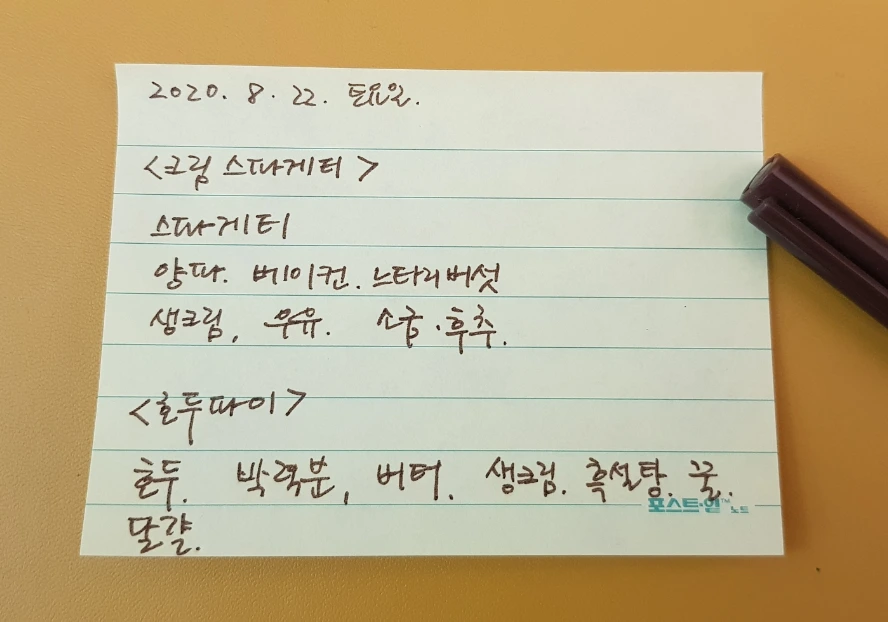 2020. 8. 22. 토요일.
<크림 스파게티>
스파게티
양파. 베이컨. 느타리버섯
생크림, 우유. 소금. 후추.
<호두파이>
호두. 박력분, 버터. 생크림. 흑설탕. 꿀.
포스트-잇™ 노트
달걀.